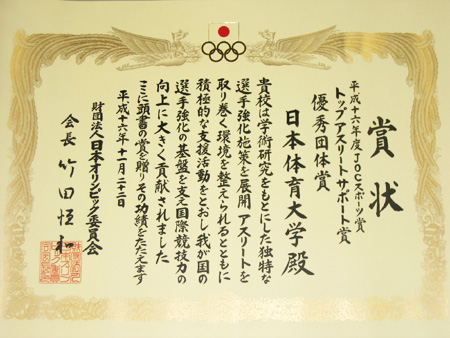 賞状
平成十六年度JOCスポーツ賞
トップアスリートサポート賞
優秀団体賞
日本体育大学殿
貴校は学術研究をもとにした独特な
選手強化施策を展開 アスリートを
取り巻く環境を整えられるとともに
積極的な支援活動をとおし我が国の
選手強化の基盤を支え国際競技力の
向上に大きく貢献されました
ここに頭書の賞を贈りその功績をたたえます
平成十六年十一月二十二日
財団法人日本オリンピック委員会
会長 竹田恆和